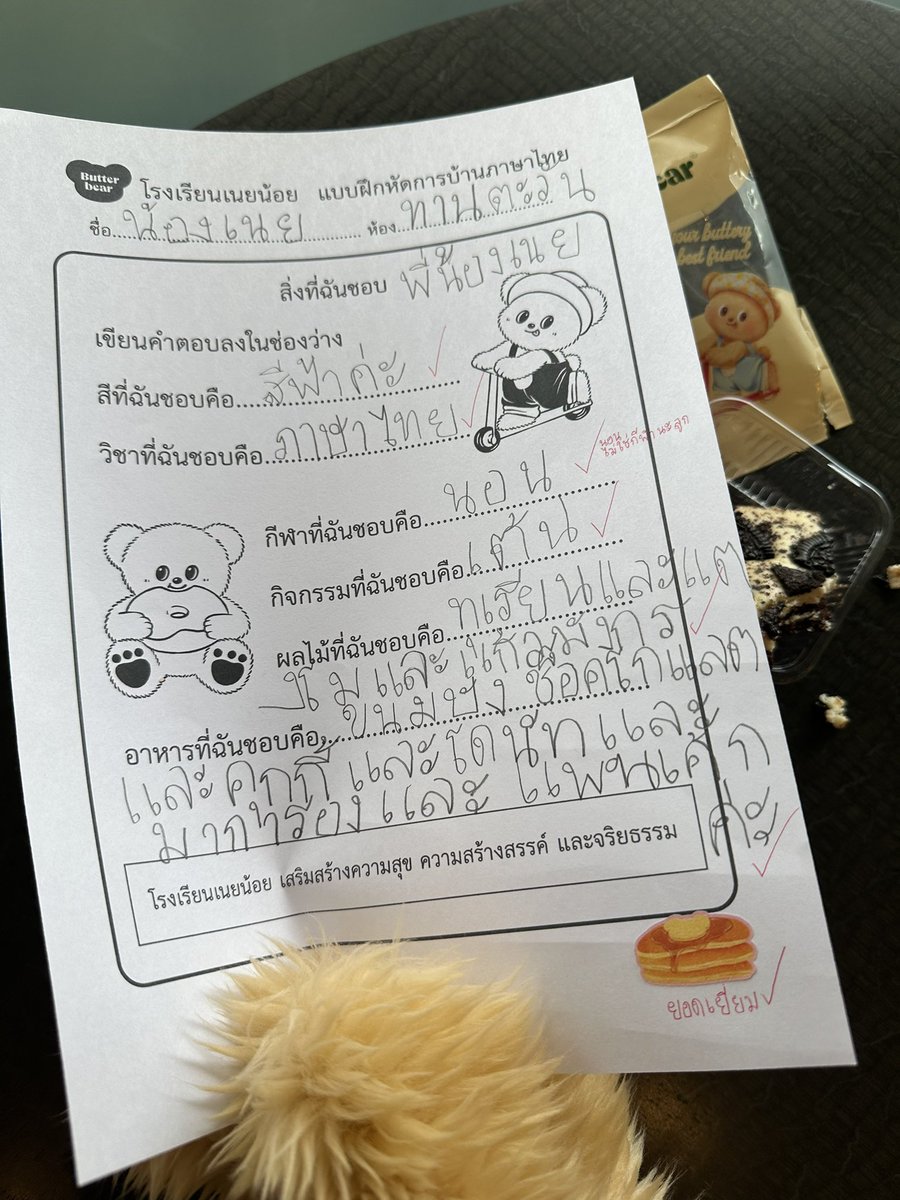 Butter
bear
โรงเรียนเนยน้อย แบบฝึกหัดการบ้านภาษาไทย
ชื่อ น้องเนย ห้อง ทานตะวัน
สิ่งที่ฉันชอบ พี่น้องเนย
เขียนคำตอบลงในช่องว่าง
สีที่ฉันชอบคือ สีฟ้าค่ะ
วิชาที่ฉันชอบคือ ภาษาไทย
กีฬาที่ฉันชอบคือ นอน
นอน
ไม่ใช่กีฬานะลูก
กิจกรรมที่ฉันชอบคือ เต้น
ผลไม้ที่ฉันชอบคือ ทเรียนและแต
งโมและแก้วมังกร
อาหารที่ฉันชอบคือ ขนมปังช็อคโกแลต
และคุกกี้และโดนัทและ
มาการองและแพนเค้ก
ค่ะ
โรงเรียนเนยน้อย เสริมสร้างความสุข ความสร้างสรรค์ และจริยธรรม
ยอดเยี่ยม
ear
your buttery
best friend